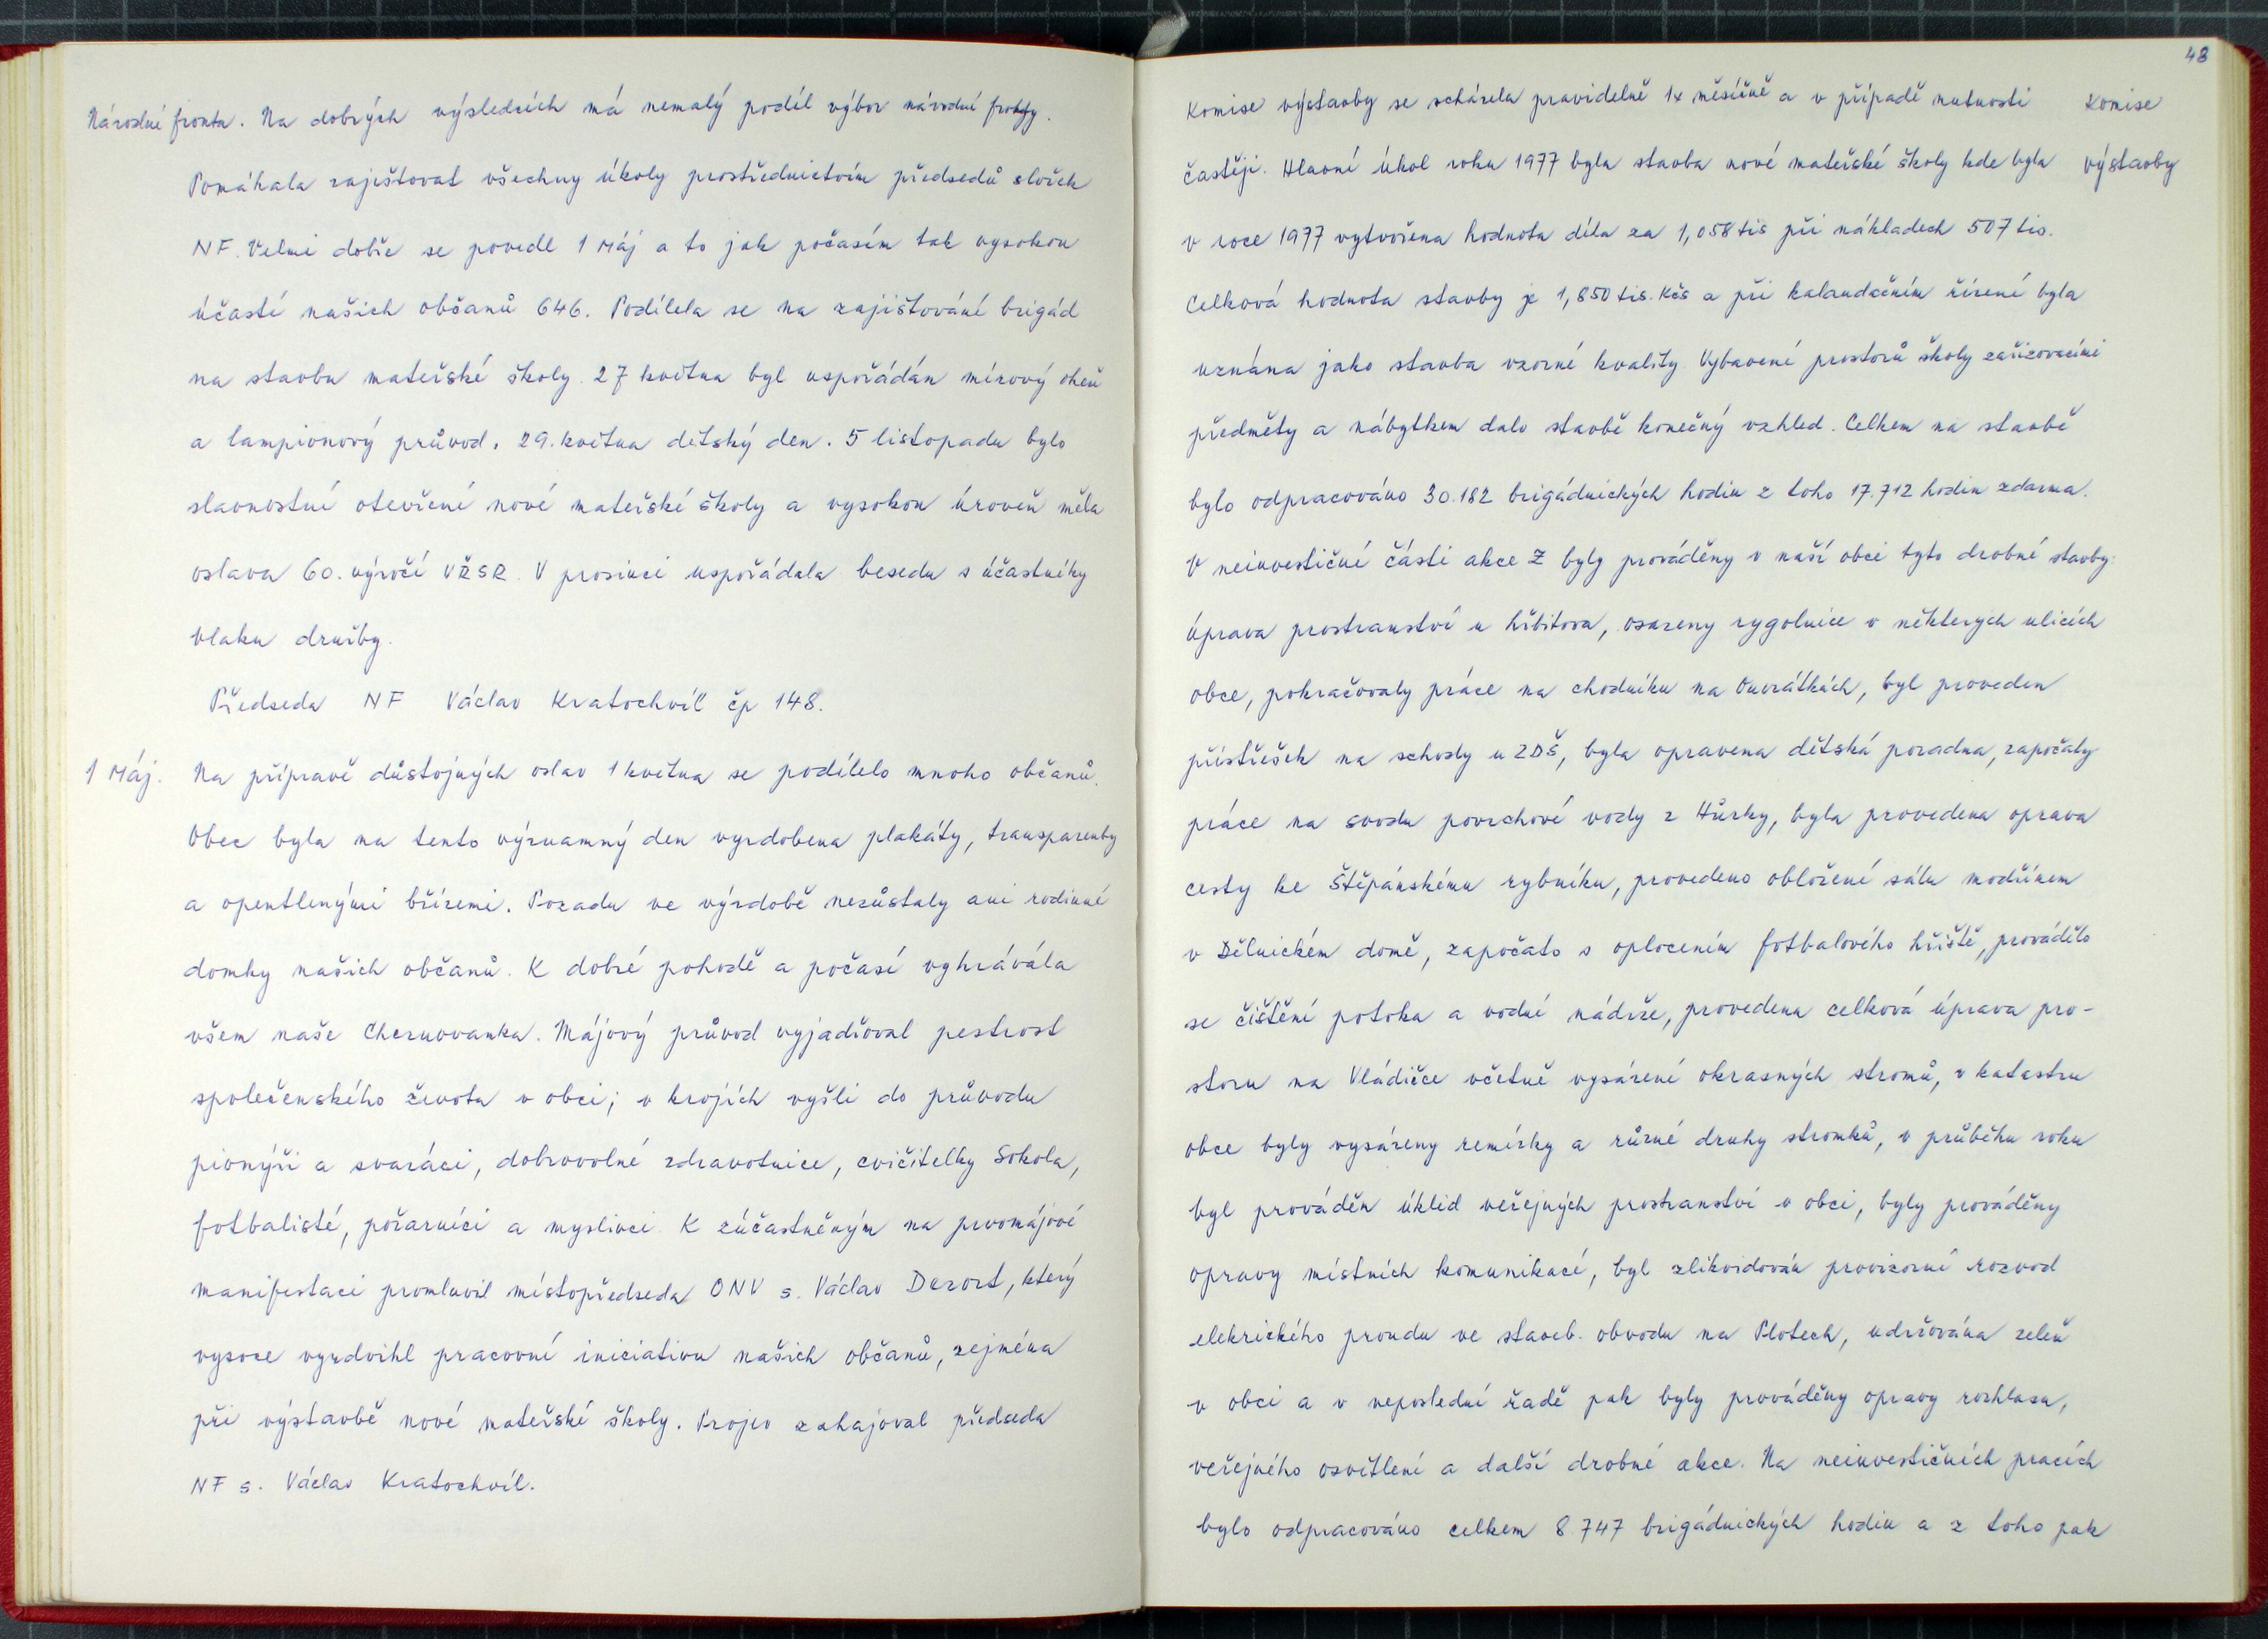 Národní fronta. Na dobrých výsledcích má nemalý podíl výbor národní fronty.
Pomáhala zajišťovat všechny úkoly prostřednictvím předsedů složek
NF. Velmi dobře se povedl 1 Máj a to jak počasím tak vysokou
účastí našich občanů 646. Podílela se na zajišťování brigád
na stavbu mateřské školy. 27 května byl uspořádán mírový oheň
a lampionový průvod. 29. května dětský den. 5 listopadu bylo
slavnostní otevření nové mateřské školy a vysokou úroveň měla
oslava 60. výročí VŘSR. V prosinci uspořádala besedu s účastníky
vlaku družby.
Předseda NF Václav Kratochvíl čp 148.
1 Máj. Na přípravě důstojných oslav 1 května se podílelo mnoho občanů.
Obec byla na tento významný den vyzdobena plakáty, transparenty
a opentlenými břízemi. Pozadu ve výzdobě nezůstaly ani rodinné
domky našich občanů. K dobré pohodě a počasí vyhrávála
všem naše Chernovanka. Májový průvod vyjadřoval pestrost
společenského života v obci; v krojích vyšli do průvodu
pionýři a svazáci, dobrovolné zdravotnice, cvičitelky Sokola,
fotbalisté, požárníci a myslivci. K zúčastněným na prvomájové
manifestaci promluvil místopředseda ONV s. Václav Dezort, který
vysoce vyzdvihl pracovní iniciativu našich občanů, zejména
při výstavbě nové mateřské školy. Projev zahajoval předseda
NF s. Václav Kratochvíl.
48
Komise výstavby se scházela pravidelně 1x měsíčně a v případě nutnosti Komise
častěji. Hlavní úkol roku 1977 byla stavba nové mateřské školy kde byla výstavby
v roce 1977 vytvořena hodnota díla za 1,058 tis při nákladech 507 tis.
Celková hodnota stavby je 1,850 tis. Kčs a při kalaudačním řízení byla
uznána jako stavba vzorné kvality. Vybavení prostorů školy zařizovacími
předměty a nábytkem dalo stavbě konečný vzhled. Celkem na stavbě
bylo odpracováno 30.182 brigádnických hodin z toho 17.712 hodin zdarma.
V neinvestiční části akce Z byly prováděny v naší obci tyto drobné stavby:
úprava prostranství u hřbitova, osazeny rygolnice v některých ulicích
obce, pokračovaly práce na chodníku na Ouvrátkách, byl proveden
přístřešek na schody u ZDŠ, byla opravena dětská poradna, započaty
práce na svodu povrchové vody z Hůrky, byla provedena oprava
cesty ke Štěpánskému rybníku, provedeno obložení sálu modřínem
v Dělnickém domě, započato s oplocením fotbalového hřiště, provádělo
se čištění potoka a vodní nádrže, provedena celková úprava pro-
storu na Vládičce včetně vysázení okrasných stromů, v katastru
obce byly vysázeny remízky a různé druhy stromků, v průběhu roku
byl prováděn úklid veřejných prostranství v obci, byly prováděny
opravy místních komunikací, byl zlikvidován provizorní rozvod
elekrického proudu ve staveb. obvodu na Plotech, udržována zeleň
v obci a v neposlední řadě pak byly prováděny opravy rozhlasu,
veřejného osvětlení a další drobné akce. Na neinvestičních pracích
bylo odpracováno celkem 8.747 brigádnických hodin a z toho pak